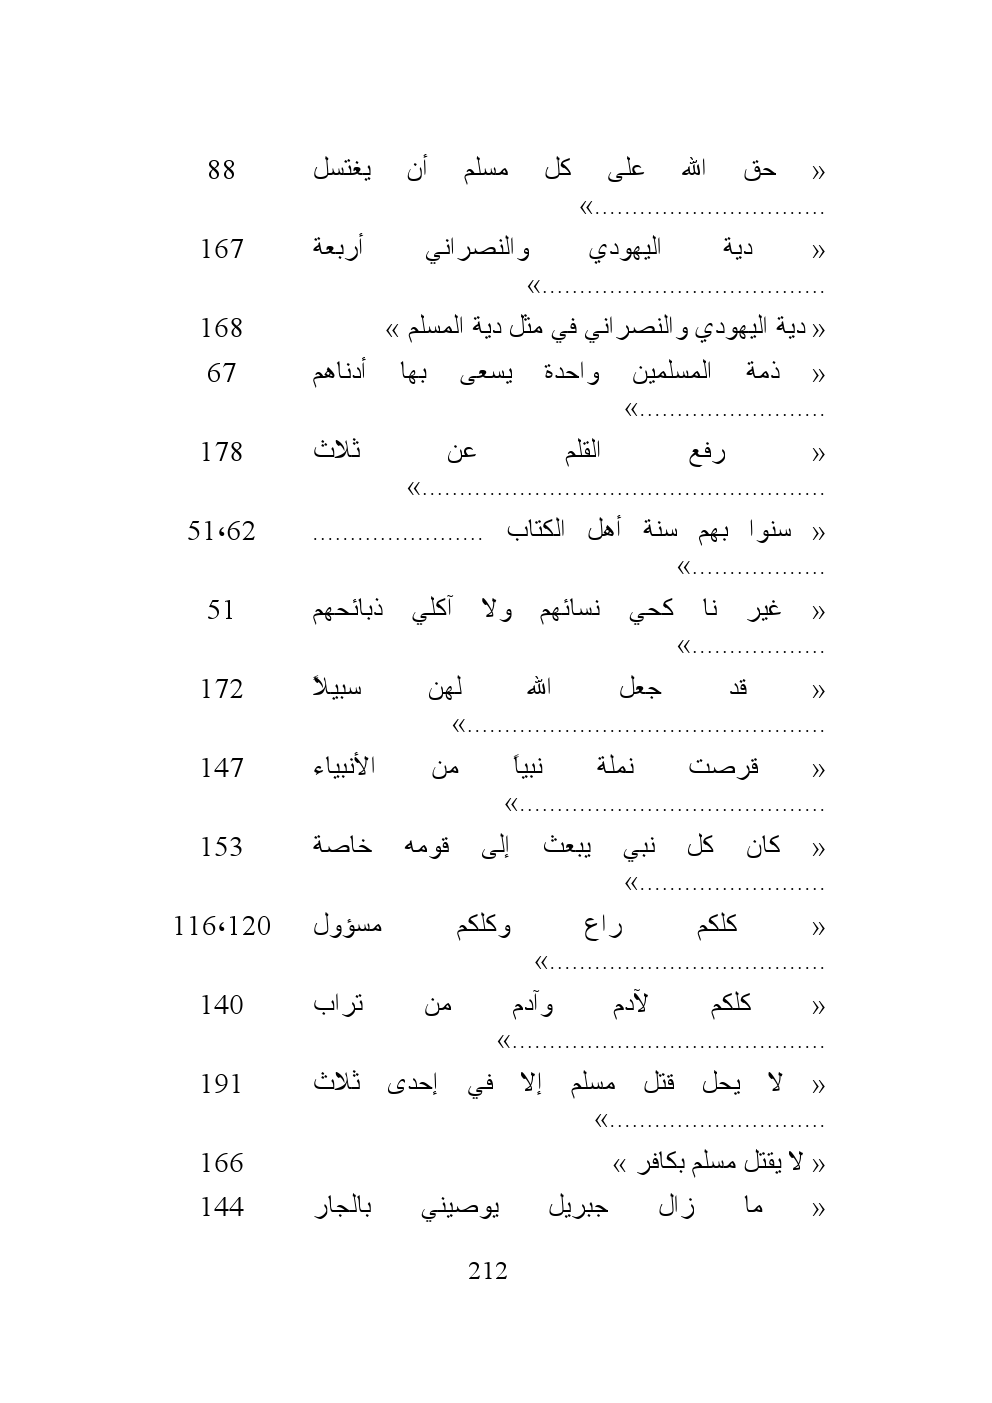 « حق الله على كل مسلم أن يغتسل 88
...............................»
« دية اليهودي والنصراني أربعة 167
......................................»
« دية اليهودي والنصراني في مثل دية المسلم » 168
« ذمة المسلمين واحدة يسعى بها أدناهم 67
.........................»
« رفع القلم عن ثلاث 178
......................................................»
« سنوا بهم سنة أهل الكتاب ....................... 51،62
..................»
« غير نا كحي نسائهم ولا آكلي ذبائحهم 51
..................»
« قد جعل الله لهن سبيلاً 172
................................................»
« قرصت نملة نبياً من الأنبياء 147
.........................................»
« كان كل نبي يبعث إلى قومه خاصة 153
.........................»
« كلكم راع وكلكم مسؤول 116،120
.....................................»
« كلكم لآدم وآدم من تراب 140
..........................................»
« لا يحل قتل مسلم إلا في إحدى ثلاث 191
.............................»
« لا يقتل مسلم بكافر » 166
« ما زال جبريل يوصيني بالجار 144
212